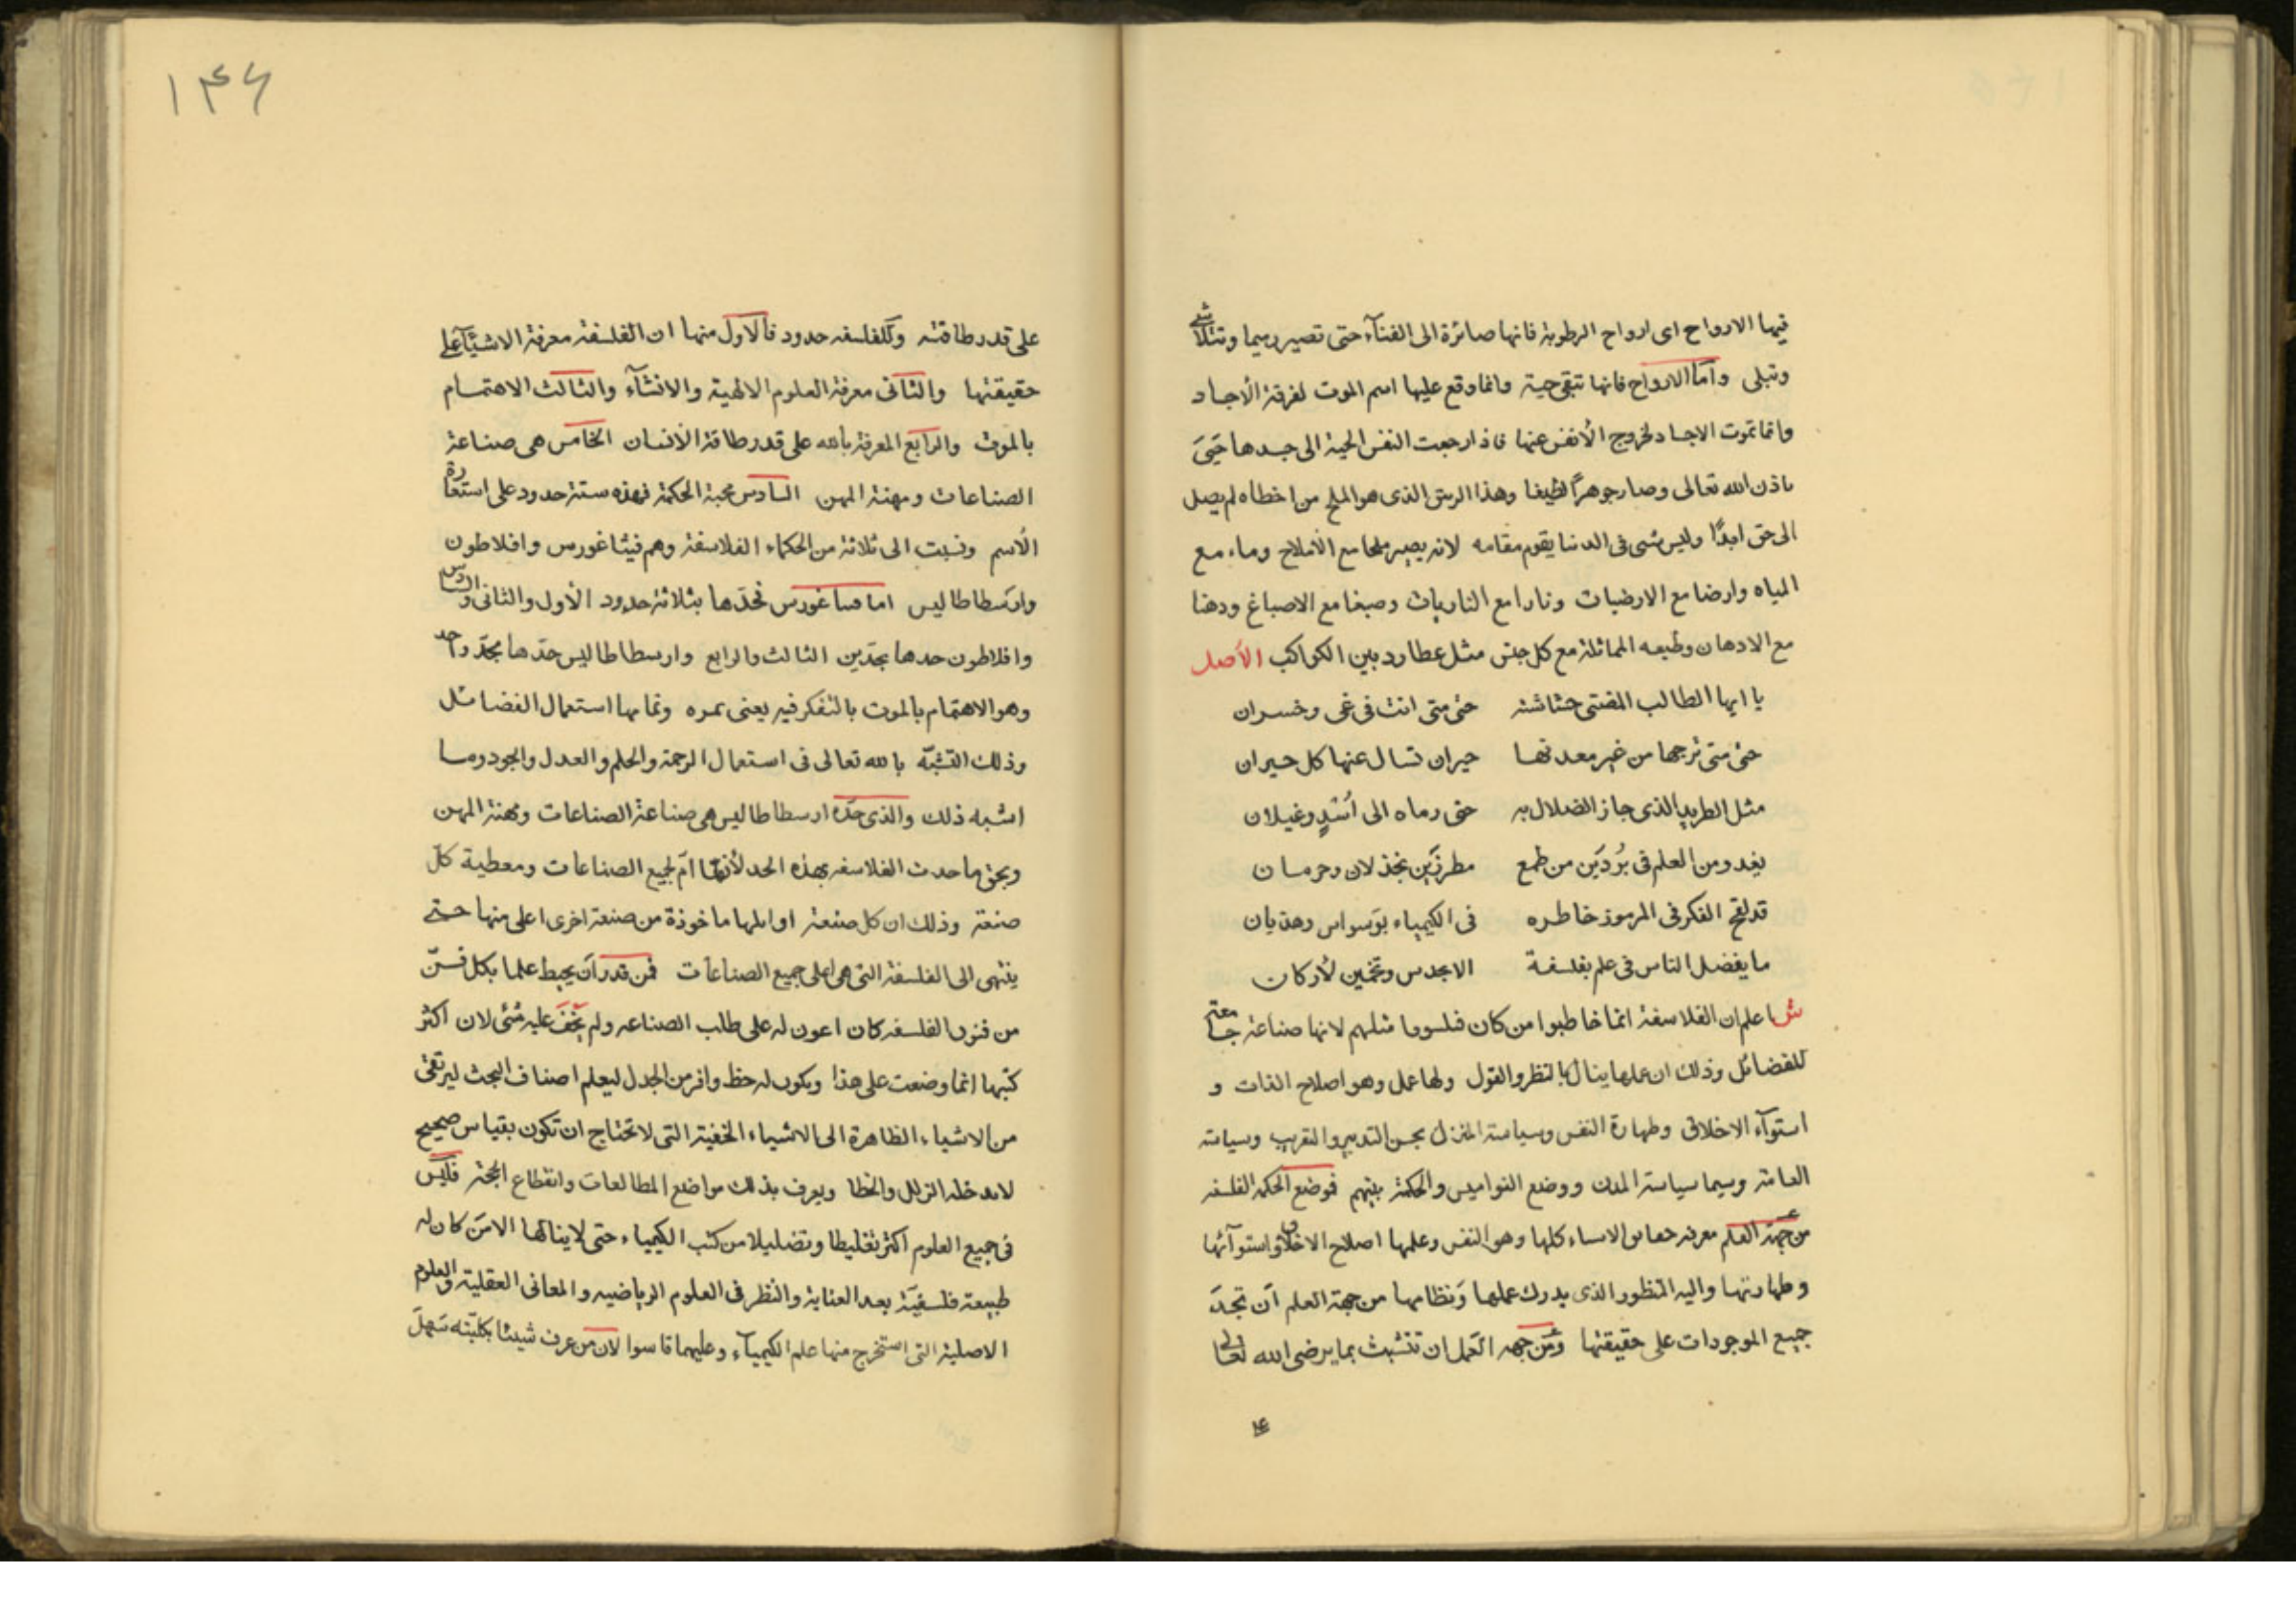 فيها الارواح اى ارواح الرطوبة فانها صائرة الى الفنآء حتى تصير رميما وتتلاشى
وتبلى وأما الارواح فانها تبقى حية وانما وقع عليها اسم الموت لفرقة الأجساد
وانما تموت الاجساد لخروج الأنفس عنها فاذا رجعت النفس الحية الى جسدها حَيِىَ
باذن الله تعالى وصار جوهرًا لطيفا وهذا الريق الذى هو الملح من اخطاه لم يصل
الى حق ابدًا وليس شى فى الدنيا يقوم مقامه لانه يصير ملحا مع الأملاح وماء مع
المياه وارضا مع الارضيات ونارا مع الناريات وصبغا مع الاصباغ ودهنا
مع الادهان وطبعه المماثلة مع كل جنس مثل عطارد بين الكواكب الأصل
يا ايها الطالب المفنى حشاشته حتى متى انت فى غى وخسران
حتى متى ترجها من غير معدنها حيران تسال عنها كل حيران
مثل الطريد الذى جاز الضلال به حتى رماه الى أُسْدٍ وغيلان
يغدو من العلم فى بُردَين من طمع مطرزَين بخذلان وحرمان
قد لقح الفكر فى المرموز خاطره فى الكيمياء بوَسواس وهذيان
ما يفضل الناس فى علم بفلسفة الا بحدس وتخمين لأركان
ش اعلم ان الفلاسفة انما خاطبوا من كان فيلسوفا مثلهم لانها صناعة جامعة
للفضائل وذلك ان علمها ينال بالنظر والقول ولها عمل وهو اصلاح الذات و
استوآء الاخلاق وطهارة النفس وسياسة المنزل بحسن التدبير والتقريب وسياسة
العامة وسيما سياسة المدن ووضع النواميس والحكمة بينهم فوضع الحكمه الفلسفه
من جهة العلم معرفه حقائق الاشياء كلها وهو النفس وعلمها اصلاح الاخلاق واستوآئها
وطهارتها واليه المنظور الذى يدرك عملها ونظامها من جهة العلم أن تجد
جميع الموجودات على حقيقتها ومن جهه العمل ان تتشبث بما يرضى الله تعالى
على
١٣۶
على قدر طاقته وللفلسفه حدود فالاول منها ان الفلسفة معرفة الاشيآء على
حقيقتها والثانى معرفة العلوم الالهية والانشآء والثالث الاهتمام
بالموت والرابع المعرفة بالله على قدر طاقة الأنسان الخامس هى صناعة
الصناعات ومهنة المهن السادس محبة الحكمة فهذه ستة حدود على استعارة
الأسم ونسبت الى ثلاثة من الحكماء الفلاسفة وهم فيثاغورس وافلاطون
وارسطاطاليس اما فيثاغورس فحدّها بثلاثة حدود الأول والثانى والسادس
وافلاطون حدها بحدّين الثالث والرابع وارسطاطاليس حدّها بحدّ واحد
وهو الاهتمام بالموت بالتفكر فيه يعنى ثمره وتمامها استعمال الفضائل
وذلك التشبّه بالله تعالى فى استعمال الرحمة والحلم والعدل والجود وما
اشبه ذلك والذى حدّه ارسطاطاليس هى صناعة الصناعات ومهنة المهن
وبحق ما حدت الفلاسفه بهذه الحد لأنها امّ لجميع الصناعات ومعطية كلّ
صنعة وذلك ان كل صنعة اوايلها ماخوذة من صنعة اخرى اعلى منها حتى
ينتهى الى الفلسفة التى هى اعلى جميع الصناعات فمن قدر أن يحيط علما بكل فنّ
من فنون الفلسفه كان اعون له على طلب الصناعه ولم يخفَ عليه شئى لان اكثر
كتبها انما وضعت على هذا ويكون له حظ وافر من الجدل ليعلم اصناف البحث ليرتقى
من الاشياء الظاهرة الى الاشياء الخفية التى لا تحتاج ان تكون بقياس صحيح
لا يدخله الزلل والخطا ويعرف بذلك مواضع المطالعات وانقطاع الحجة فليس
فى جميع العلوم اكثر تغليطا وتضليلا من كتب الكيمياء حتى لا ينالها الا من كان له
طبيعة فلسفيّة بعد العناية والنظر فى العلوم الرياضيه والمعانى العقلية والعلوم
الاصلية التى استخرج منها علم الكيميآء وعليهما قاسوا لان من عرف شيئا بكليّته سَهلَ